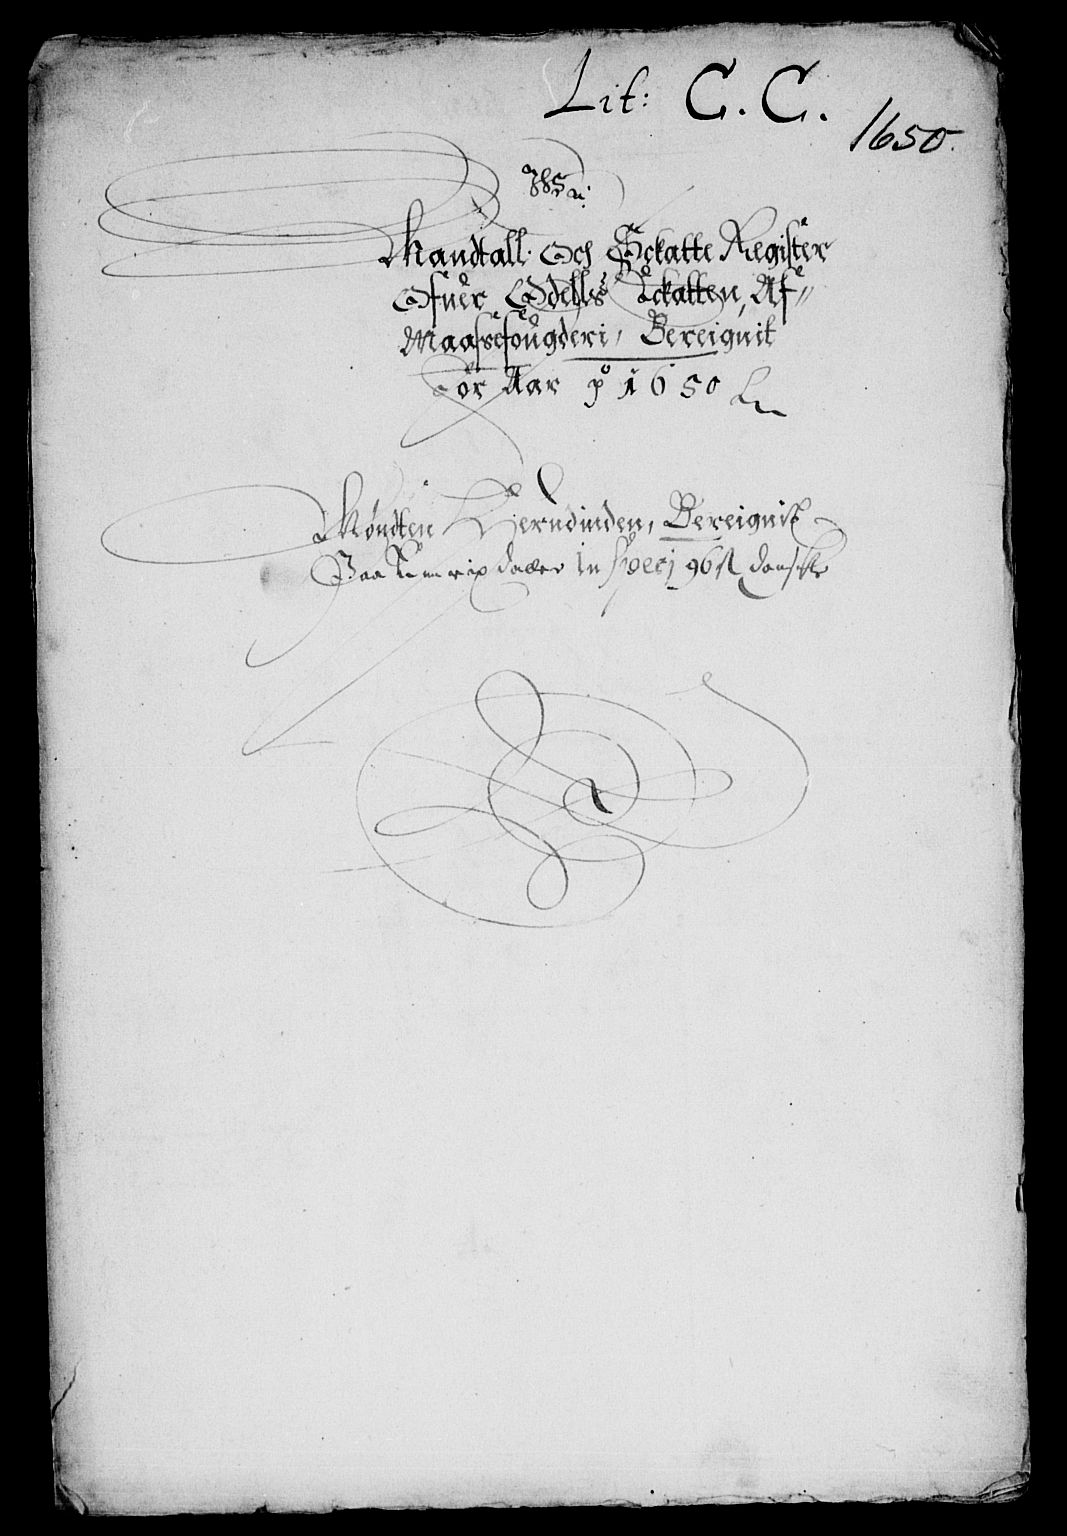 Lit: C. C.
1650.
Mandtall. Och Schatte Register
Ofuer Odells Schatten, Af
Maassefougderi, Bereignit
för Aar p 1650
Møndten Herudinden, Bereignit
Paa daler In Specj 96 ſl danske